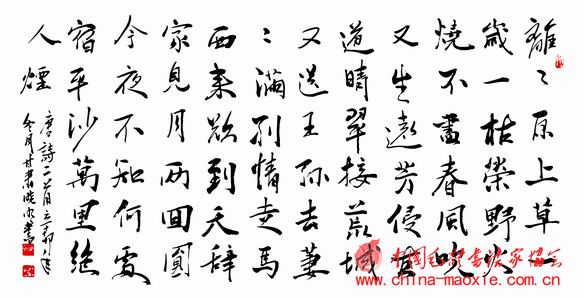 離〻原上草一
歲一枯榮野火
燒不盡春風吹
又生遠芳侵古
道晴翠接荒城
又送王孫去萋
〻滿別情走馬
西來欲到天辭
家見月兩回圓
今夜不知何處
宿平沙萬里絕
人煙
唐詩二首辛卯年
冬月甘肅書
中國毛體書法家協會
www.china-maoxie.com